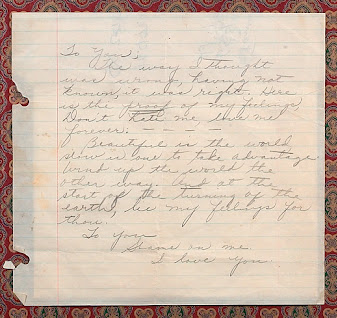 To You,
The way I thought
was wrong, having not
known, it was right. Here
is the proof of my feelings,
Don't hate me love me
forever. - - - -
Beautiful is the world
slow is one to take advantage
wind up the world the
other way. And at the
start of the turning of the
earth, lie my feelings for
thou.
To You
Shame on me
I love You.